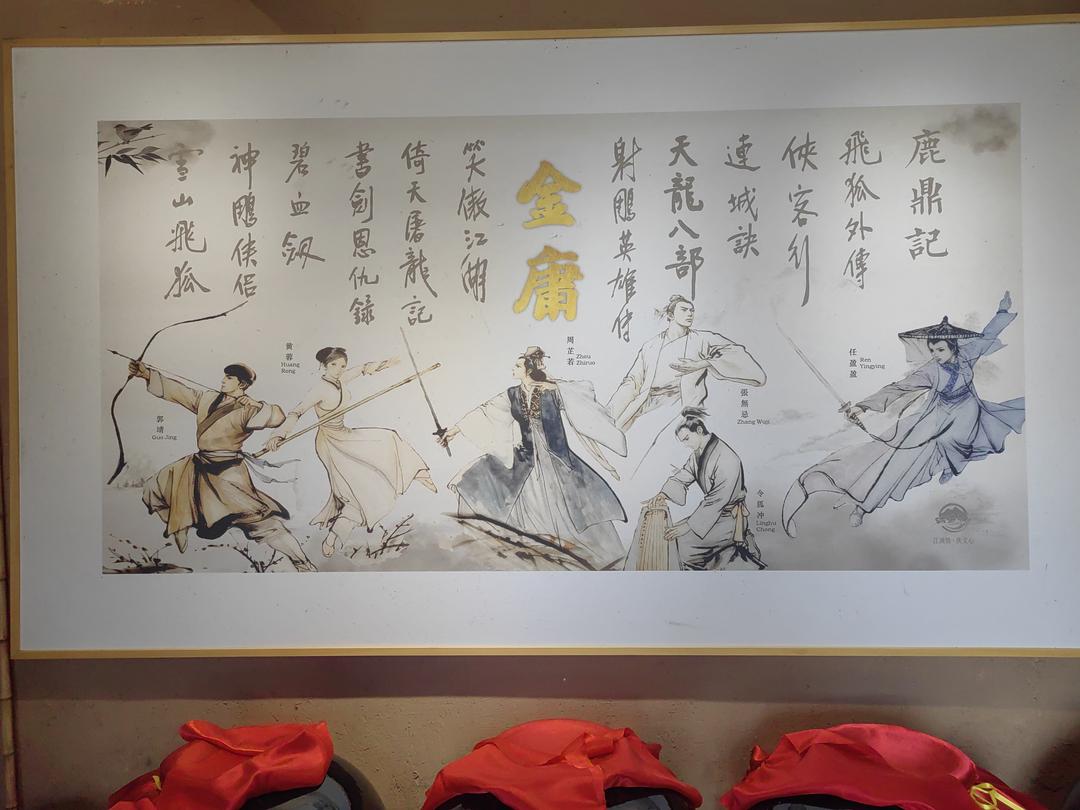 鹿鼎記
飛狐外傳
俠客行
連城訣
天龍八部
射鵰英雄传
金庸
笑傲江湖
倚天屠龍記
書劍恩仇錄
碧血劍
神鵰侠侣
雪山飛狐
郭靖
Guo Jing
黄蓉
Huang
Rong
周芷若
Zhou
Zhiruo
張無忌
Zhang Wuji
令狐冲
Linghu
Chong
任盈盈
Ren
Yingying